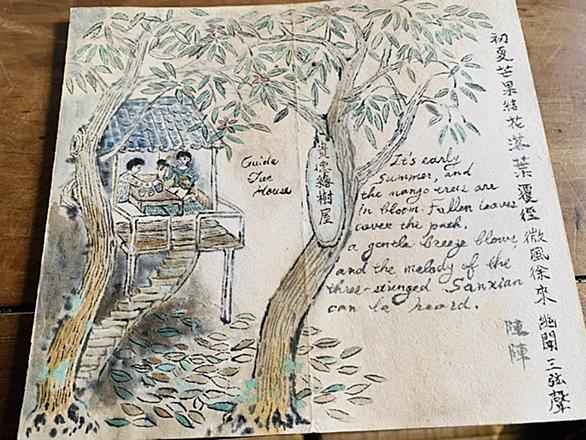 Guide
Tree
House
貴德樹屋
It's early
Summer, and
the mango trees are
in bloom. Fallen leaves
cover the path.
a gentle breeze blows,
and the melody of the
three-stringed Sanxian
can be heard.
初夏芒果結花落葉覆徑微風徐來幽聞三弦聲
陣陣